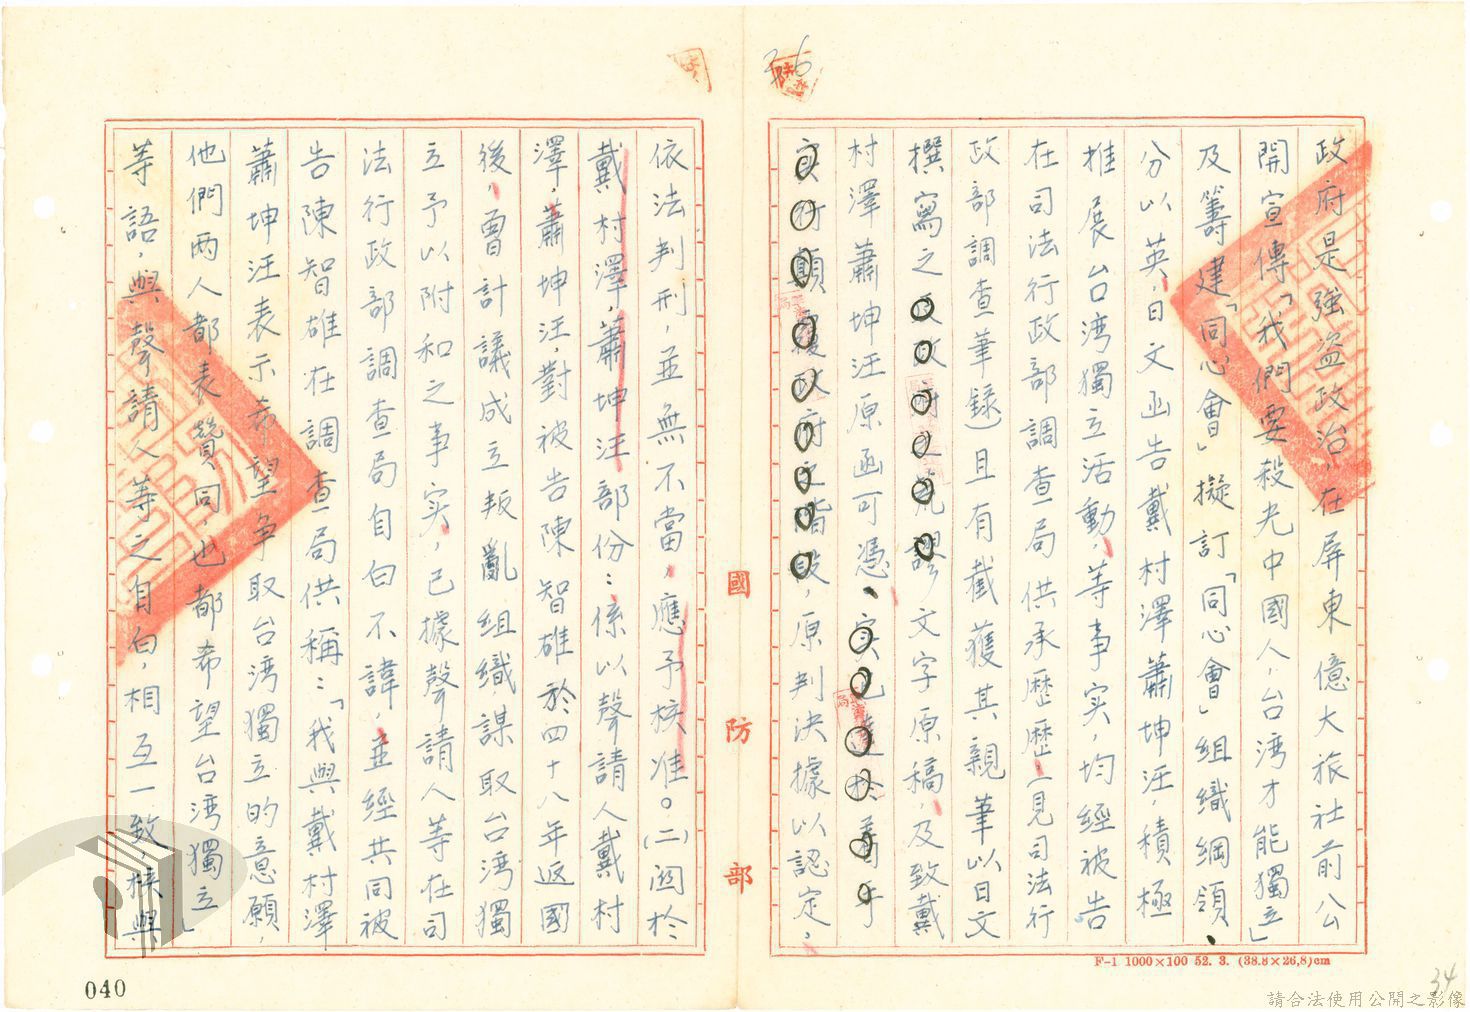 36
政府是強盜政治，在屏東億大旅社前公
開宣傳「我們要殺光中國人，台湾才能獨立」
及籌建「同心會」擬訂「同心會」組織綱領、
分以英，日文函告戴村澤蕭坤汪，積極
推展台湾獨立活動，等事实，均經被告
在司法行政部調查局供承歷歷，（見司法行
政部調查筆錄）且有截獲其親筆以日文
撰寫之文字原稿，及致戴
村澤蕭坤汪原函可憑、
原判決據以認定，
依法判刑，並無不當，應予核准。（二）関於
戴村澤，蕭坤汪部份：係以聲請人戴村
澤，蕭坤汪，對被告陳智雄於四十八年返國
後，曾計議成立叛亂組織，謀取台湾獨
立予以附和之事实，已據聲請人等在司
法行政部調查局自白不諱，並經共同被
告陳智雄在調查局供稱：「我與戴村澤
蕭坤汪表示希望爭取台湾獨立的意願，
他們两人都表贊同，也都希望台湾獨立」
等語，與聲請人等之自白，相互一致，核與
國防部
F-1 1000×100 52. 3. (38.8×26.8)cm
040
34
請合法使用公開之影像